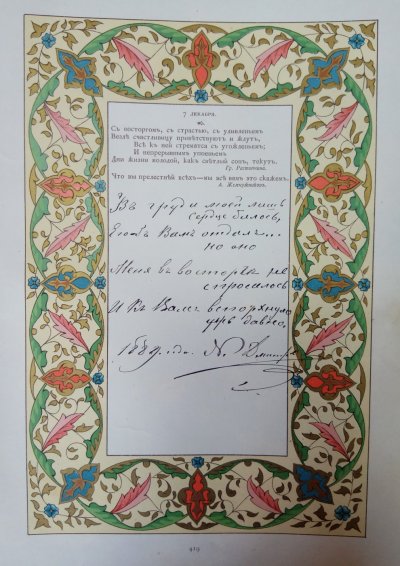 7 ДЕКАБРЯ.
Съ восторгомъ, съ страстью, съ удивленьемъ
Вездѣ счастливицу привѣтствуютъ и ждутъ,
Всѣ къ ней стремятся съ угожденьемъ;
И непрерывнымъ упоеніемъ
Дни жизни молодой, какъ свѣтлый сонъ, текутъ.
Гр. Растопчина.
Что вы прелестнѣй всѣхъ—мы всѣ вамъ это скажемъ.
А. Жемчужниковъ.
Въ груди моей лишь
сердце билось,
Вамъ
но оно
Меня въ восторгѣ не
спросилось
И къ Вамъ вспорхнуло
ужъ давно.
1889 года. Дмитр
419